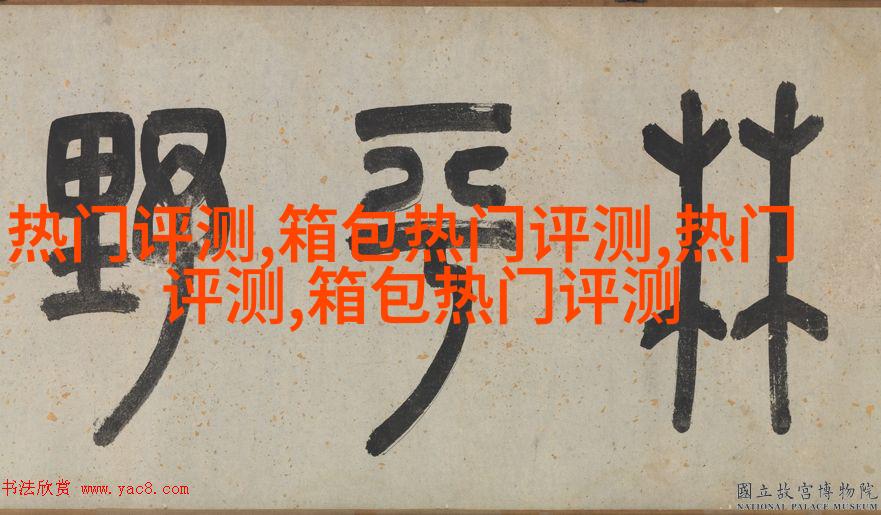 野 平 林
热门评测,箱包热门评测,热门
评测,箱包热门评测
书法欣赏 www.yac8.com
國立故宮博物院
NATIONAL PALACE MUSEUM